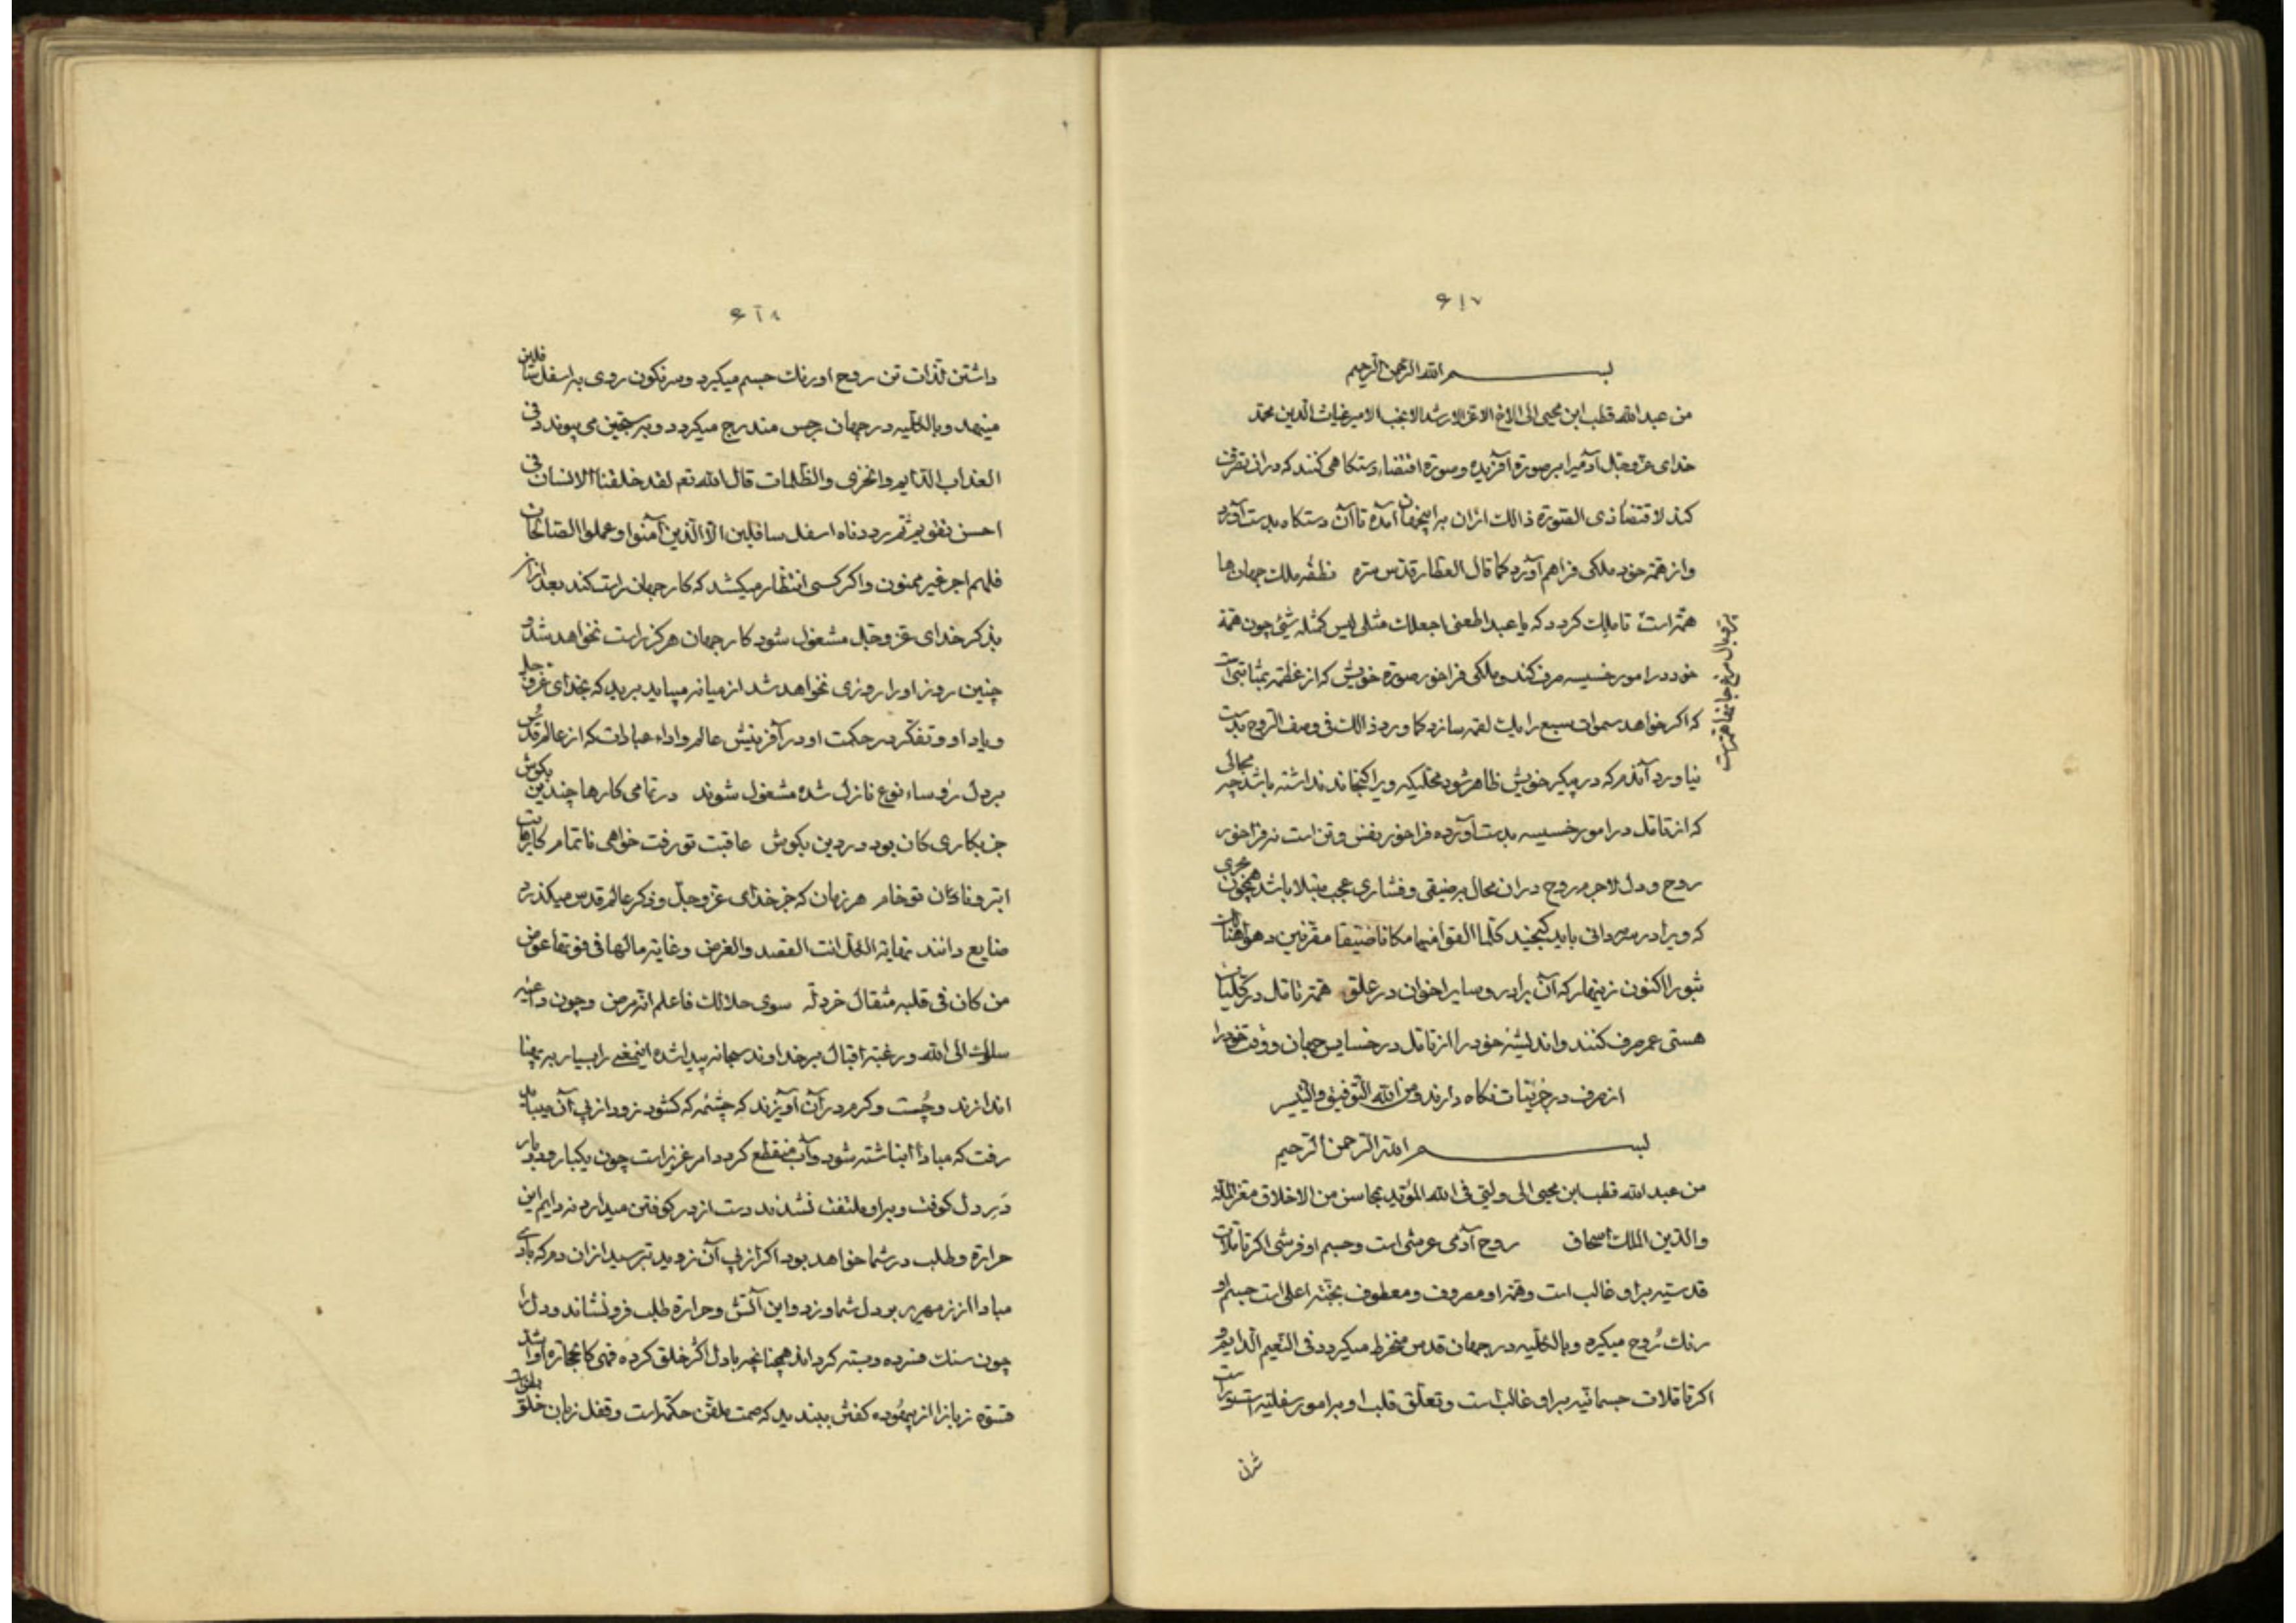 ۶۱۷
بسم الله الرحمن الرحیم
من عبد الله قطب ابن محیی الی الاخ الاعز الارشد الانجب الامیر غیاث الدین محمد
خدای عز وجل آدمیرا بر صورة آفریده و صورة اقتضاء دستکاهی کنند که در انی تصرف
کند لاقتضاء ذی الصورة ذالک ازان برا آمده تا آن دستکاه بدست آورد
و از همة خود ملکی فراهم آورد کما قال العطار قدس سره نطفه ملک جهان ها
همتراست تا ملیک کردد که یا عبد اطعنی اجعلک مثلی لیس کمثله شیئ چون همة
خود در امور خسیسه صرف کند و ملکی فراخور صورة خویش که از عظمة بمثابتی است
که اکر خواهد سموات سبع را یک لقمه سازد کما ورد ذالک فی وصف الروح بدست
نیاورد آندم که در پیکر خویش ظاهر شود محلیکه ویرا کنجاند نداشته باشد چه مجالی
که از تامل در امور خسیسه بدست آورده فراخور نفس و تن است نه فراخور
روح و دل لاجرم روح دران محال بر ضیقی و فشاری عجب مبتلا باشد همچون بحری
که ویرا در مردانی باید کنجید کلما القوا فیها مکانا ضیقا مقرنین دعوا هنالک
ثبورا اکنون زینهار که آن برادر و سایر اخوان در علو همة تا تامل در کلیات
هستی عمر صرف کنند و اندیشه خود را از تامل در خسایس جهان و وقت خود را
از صرف در جزئیات نکاه دارند و من الله التوفیق والتیسیر
بسم الله الرحمن الرحیم
من عبد الله قطب ابن محیی الی ولیی فی الله المؤید بمحاسن من الاخلاق معز الملة
والدین الملک اسحاق روح آدمی عرشی است و جسم او فرشی اکر تاملات
قدسیه بر او غالب است و همة او مصروف و معطوف بجنة اعلی است جسم او
رنک روح میکیرد و بالکلیه در جهان قدس منخرط میکردد فی النعیم الدایم و
اکر تاملات جسمانیه بر او غالب است و تعلق قلب او بر امور سفلیه است
مرغ جان ها همتست
۶۱۸
داشتن لذات تن روح او رنک جسم میکیرد و سرنکون روی به اسفل سافلین
مینهد و بالکلیه در جهان رجس مندرج میکردد و بسجین می پیوندد فی
العذاب الدایم والخزی والظلمات قال الله تع لقد خلقنا الانسان فی
احسن تقویم ثم رددناه اسفل سافلین الا الذین آمنوا وعملوا الصالحات
فلهم اجر غیر ممنون و اکر کسی انتظار میکشد که کار جهان راست کند بعد از آن
بذکر خدای عز وجل مشغول شود کار جهان هرکز راست نخواهد شد و
چنین روز او را روزی نخواهد شد از میانه میباید برید که بخدای عز وجل
و یاد او و تفکر در حکمت او در آفرینش عالم و اداء عبادات که از عالم قدس
بر دل رؤساء نوع نازل شده مشغول شوند در تمامی کارها چندین بکوش
جز بکاری کان بود در دین بکوش عاقبت تو رفت خواهی ناتمام کارهات
ابتر و نان تو خام هر زمان که جز خدای عز وجل و فکر عالم قدس میکذرد
ضایع دانند نهایة الکل انت القصد والغرض وغایة مالها فی فوتها عوض
من کان فی قلبه مثقال خردلة سوی جلالک فاعلم انه مرض و چون داعیه
سلوک الی الله و رغبة اقبال بر خداوند سبحانه پیدا شده اینمعنی را بسیار
اندازند و چست و کرم در آن آویزند که چشمه که کشود زود از پی آن میباید
رفت که مبادا انباشته شود و آب منقطع کردد امر عزیز است چون یکبار
در دل کوفت و بر او ملتفت نشدند دست از در کوفتن میدارد نه دایم این
حرارة و طلب در شما خواهد بود اکر از پی آن نروید بترسید ازان دم که بادی
مبادا از زمهریر بر دل شما وزد و این آتش و حرارة طلب فرونشاند و دل را
چون سنک فسرده و بسته کرداند همچنانچه با دل اکثر خلق کرده فهی کالحجارة او اشد
قسوة زبانرا از بیهوده کفتن ببندید که صمت ملقن حکمة است و قفل زبان خلق